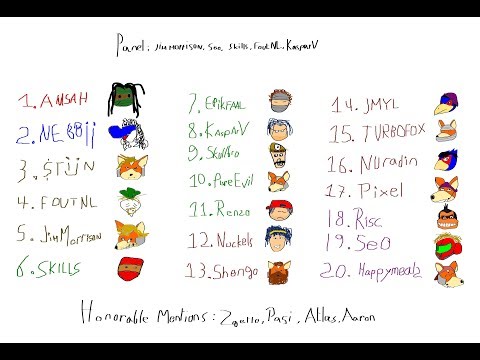 Panel: JimMorrison, Seo, Skills, FoutNL, KasparV
1. AMSAH
2. NEBBii
3. $TiJN
4. FOUTNL
5. JimMorrison
6. SKILLS
7. EPiKFAAL
8. KASPARV
9. Skullbro
10. PureEvil
11. Renzo
12. Nuckels
13. Shengo
14. JMYL
15. TURBOFOX
16. Nuradin
17. Pixel
18. Risc
19. Seo
20. Happymealz
Honorable Mentions: Pasi, Atlas, Aaron